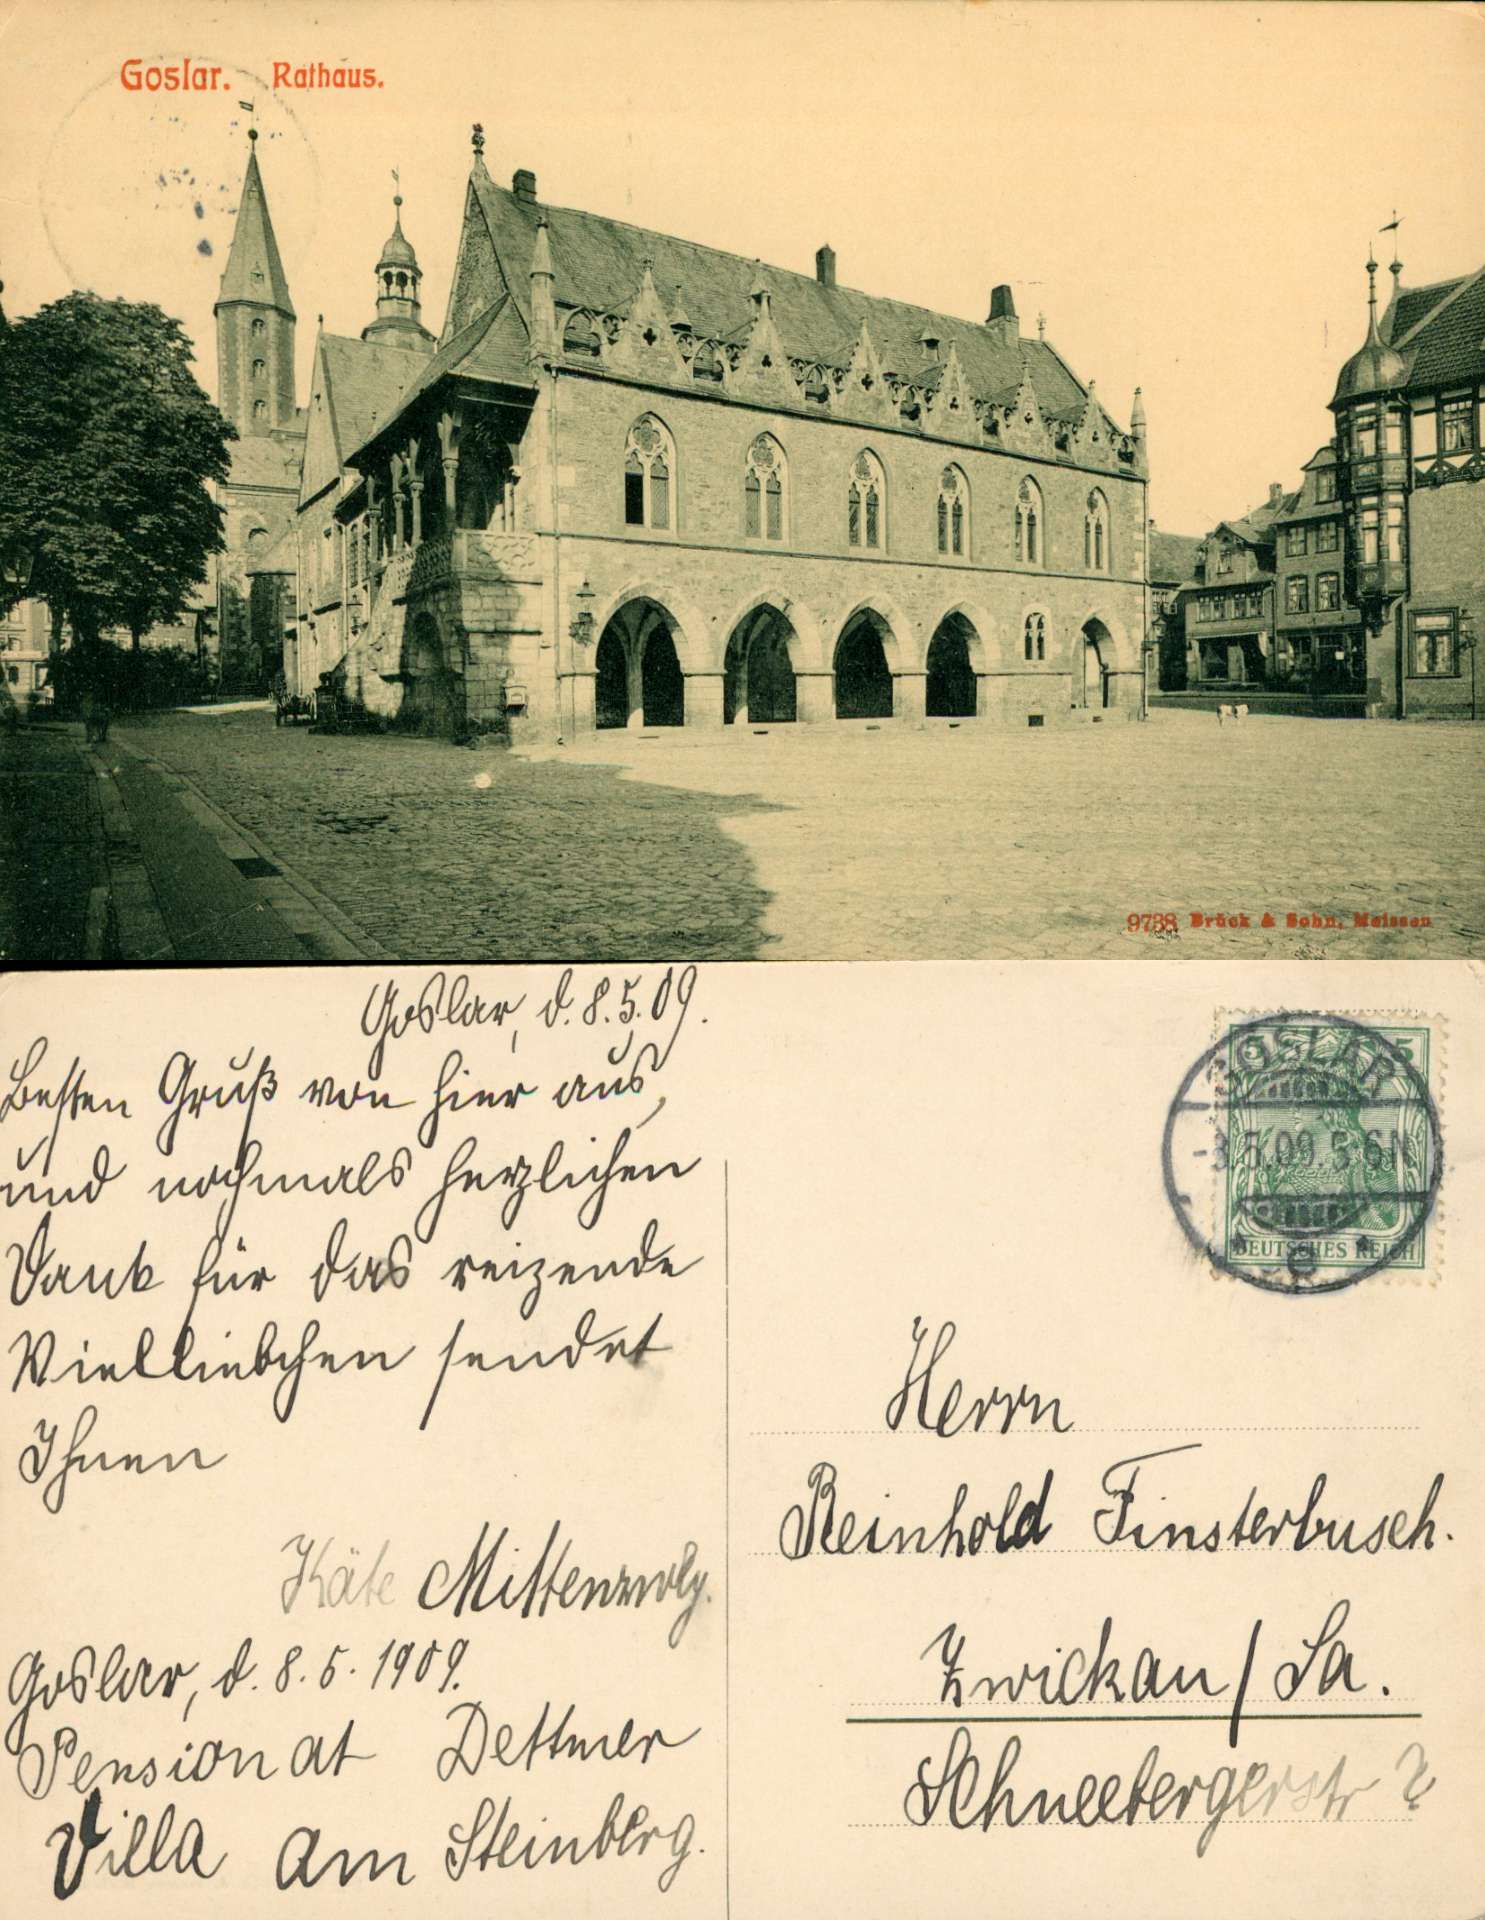 Goslar. Rathaus.
9738 Brück & Sohn, Meissen
Goslar, d. 8.5.09.
Besten Gruß von hier aus,
und nochmals herzlichen
Dank für das reizende
Vielliebchen sendet
Ihnen
Käte Mittenzwey.
Goslar, d. 8.5.1909.
Pensionat Dettmer
Villa am Steinberg.
GOSLAR
5 5
-8.5.09.5-6N
DEUTSCHES REICH
Herrn
Reinhold Finsterbusch.
Zwickau/Sa.
Schneebergerstr